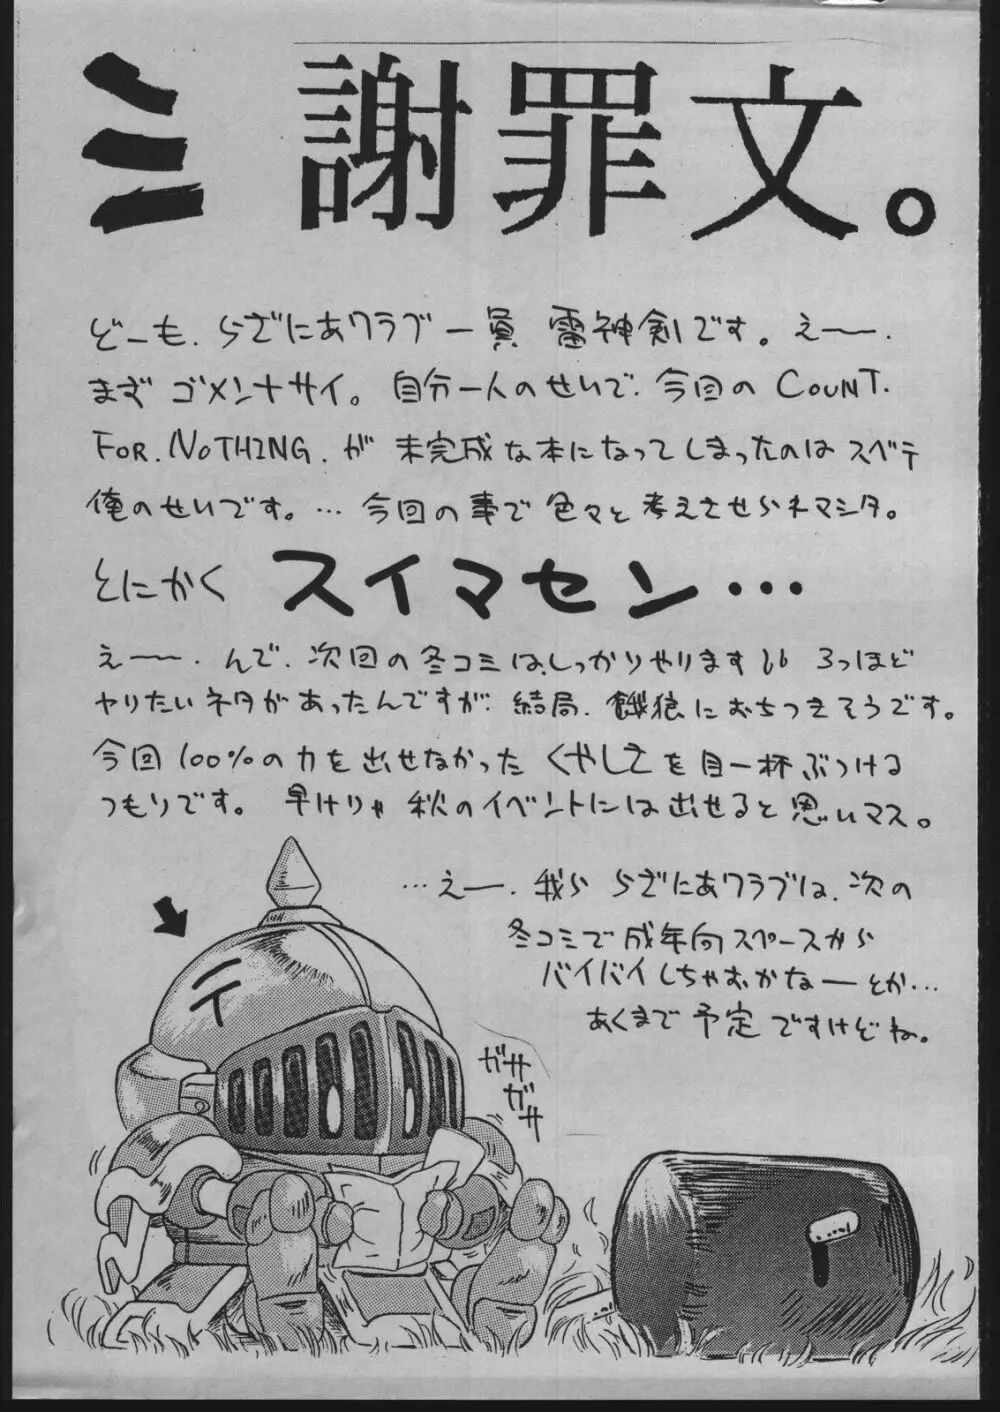 ミ 謝罪文。
どーも、らざにあクラブ一員 雷神剣です。えー、
まず ゴメンナサイ。自分一人のせいで、今回の COUNT.
FOR. NOTHING. が 未完成な本になってしまったのは スベテ
俺のせいです。… 今回の事で色々と 考えさせらネマシタ。
とにかく スイマセン…
えー、んで、次回の冬コミは、しっかりやります
3つほど
ヤりたいネタがあったんですが、結局、餓狼におちつきそうです。
今回 100%の力を出せなかった くやしさを目一杯ぶつける
つもりです。早けりゃ 秋のイベントには出せると思いマス。
…えー、我ら らざにあクラブは、次の
冬コミで成年向スペースから
バイバイしちゃおかなーとか…
あくまで 予定 ですけどね。
ガサ
ガサ